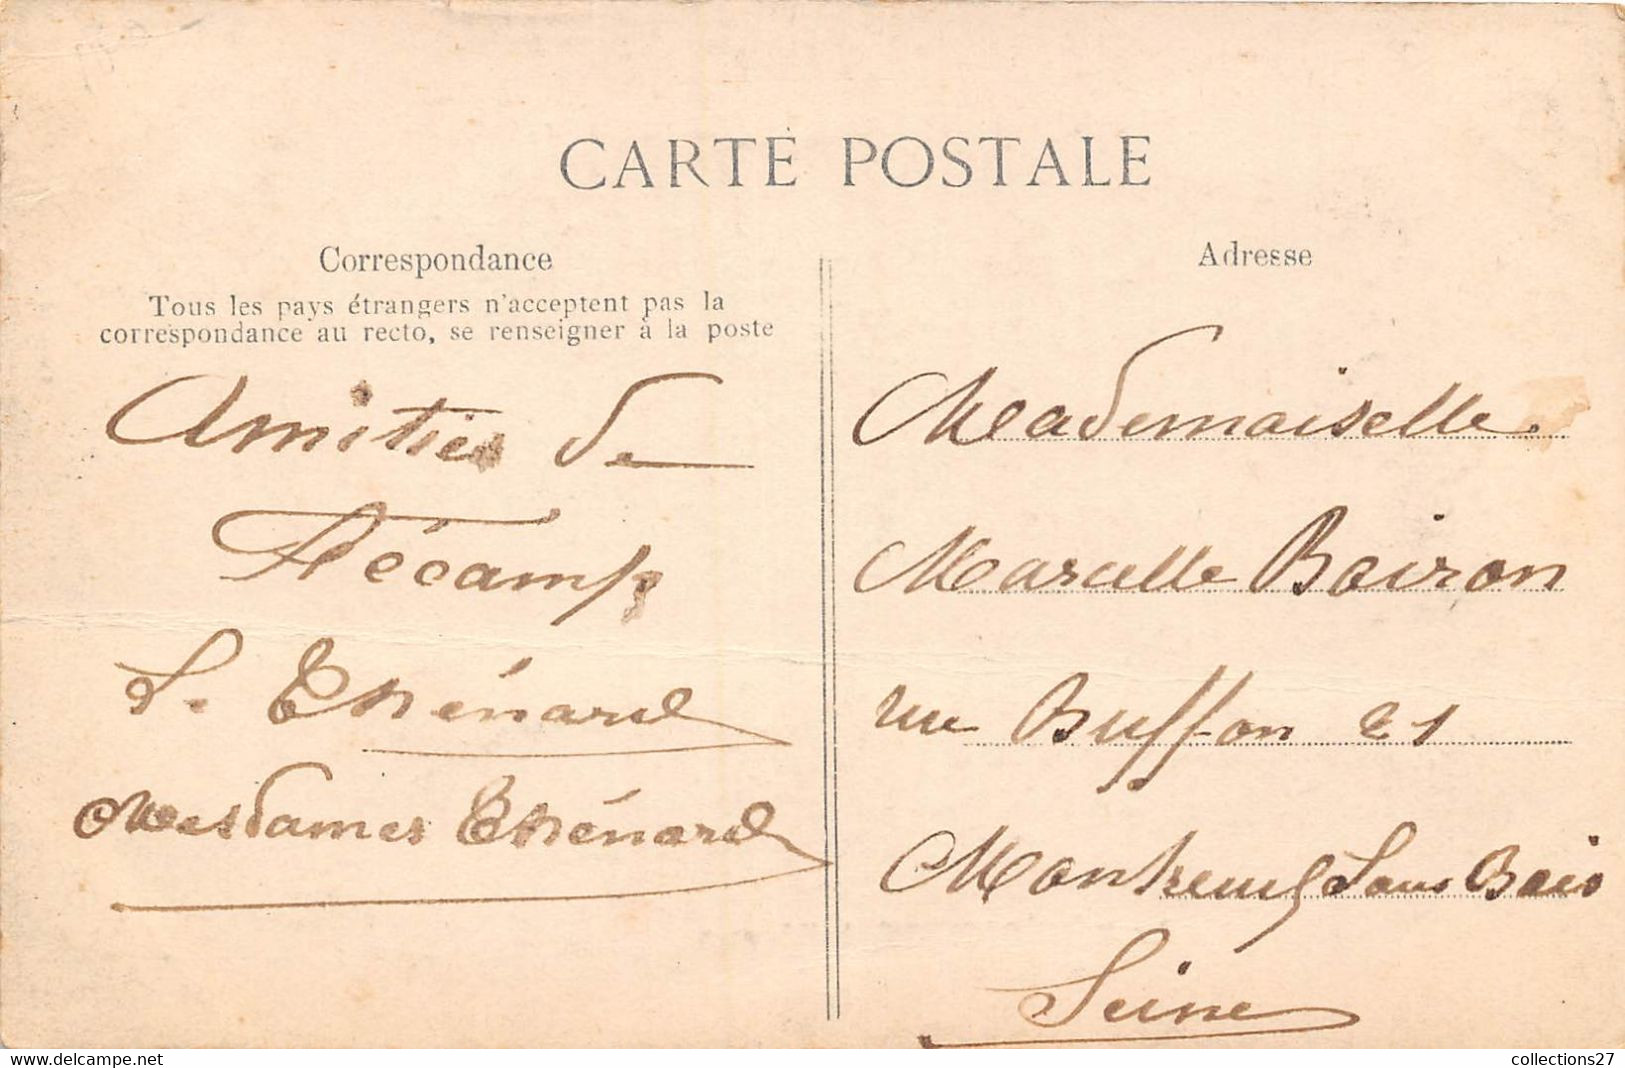 CARTE POSTALE
Correspondance
Tous les pays étrangers n'acceptent pas la
correspondance au recto, se renseigner à la poste
Amitiés de
Fécamp
L. Thénard
Mesdames Thénard
Adresse
Mademoiselle
Marcelle Boiron
rue Buffon 21
Montreuil Sous Bois
Seine
www.delcampe.net
collections27